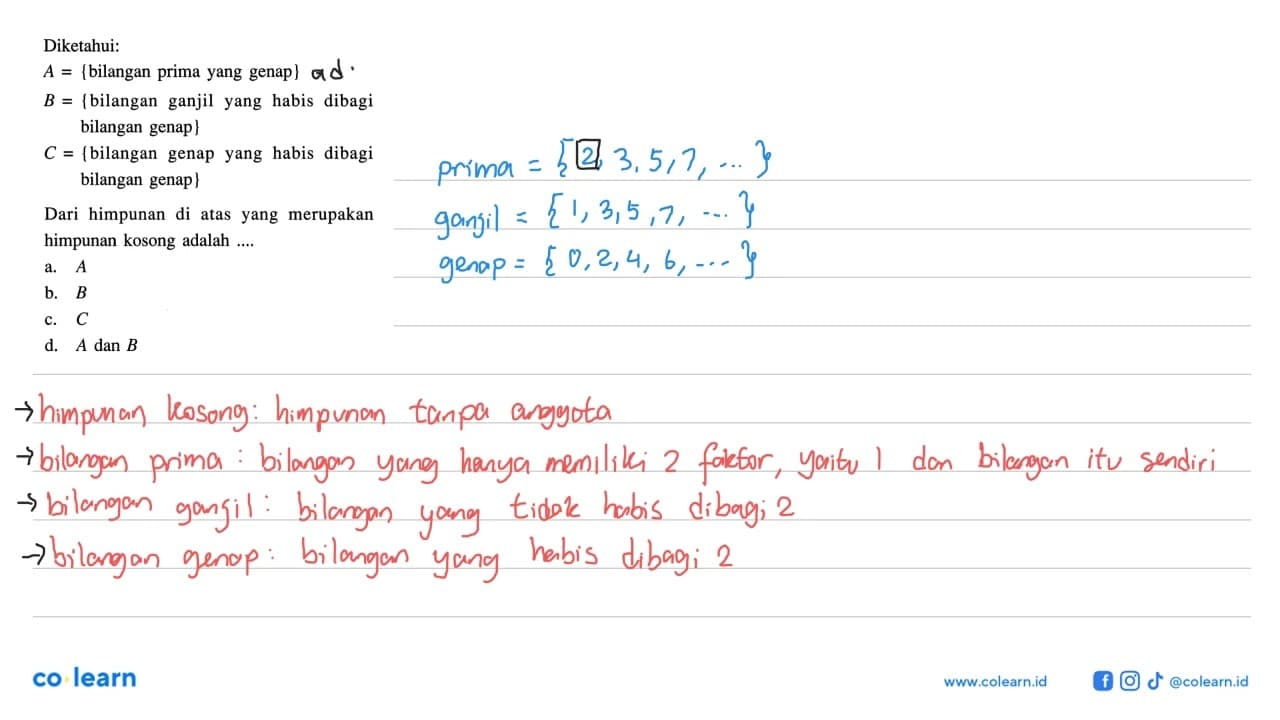 Diketahui:
A = {bilangan prima yang genap} ad.
B = {bilangan ganjil yang habis dibagi
bilangan genap}
C = {bilangan genap yang habis dibagi
bilangan genap}
Dari himpunan di atas yang merupakan
himpunan kosong adalah ....
a. A
b. B
c. C
d. A dan B
prima = {2, 3, 5, 7, ... }
ganjil = {1, 3, 5, 7, ... }
genap = {0, 2, 4, 6, ... }
→ himpunan kosong: himpunan tanpa anggota
→ bilangan prima : bilangan yang hanya memiliki 2 faktor, yaitu 1 dan bilangan itu sendiri
→ bilangan ganjil : bilangan yang tidak habis dibagi 2
→ bilangan genap : bilangan yang habis dibagi 2
co learn
www.colearn.id
@colearn.id